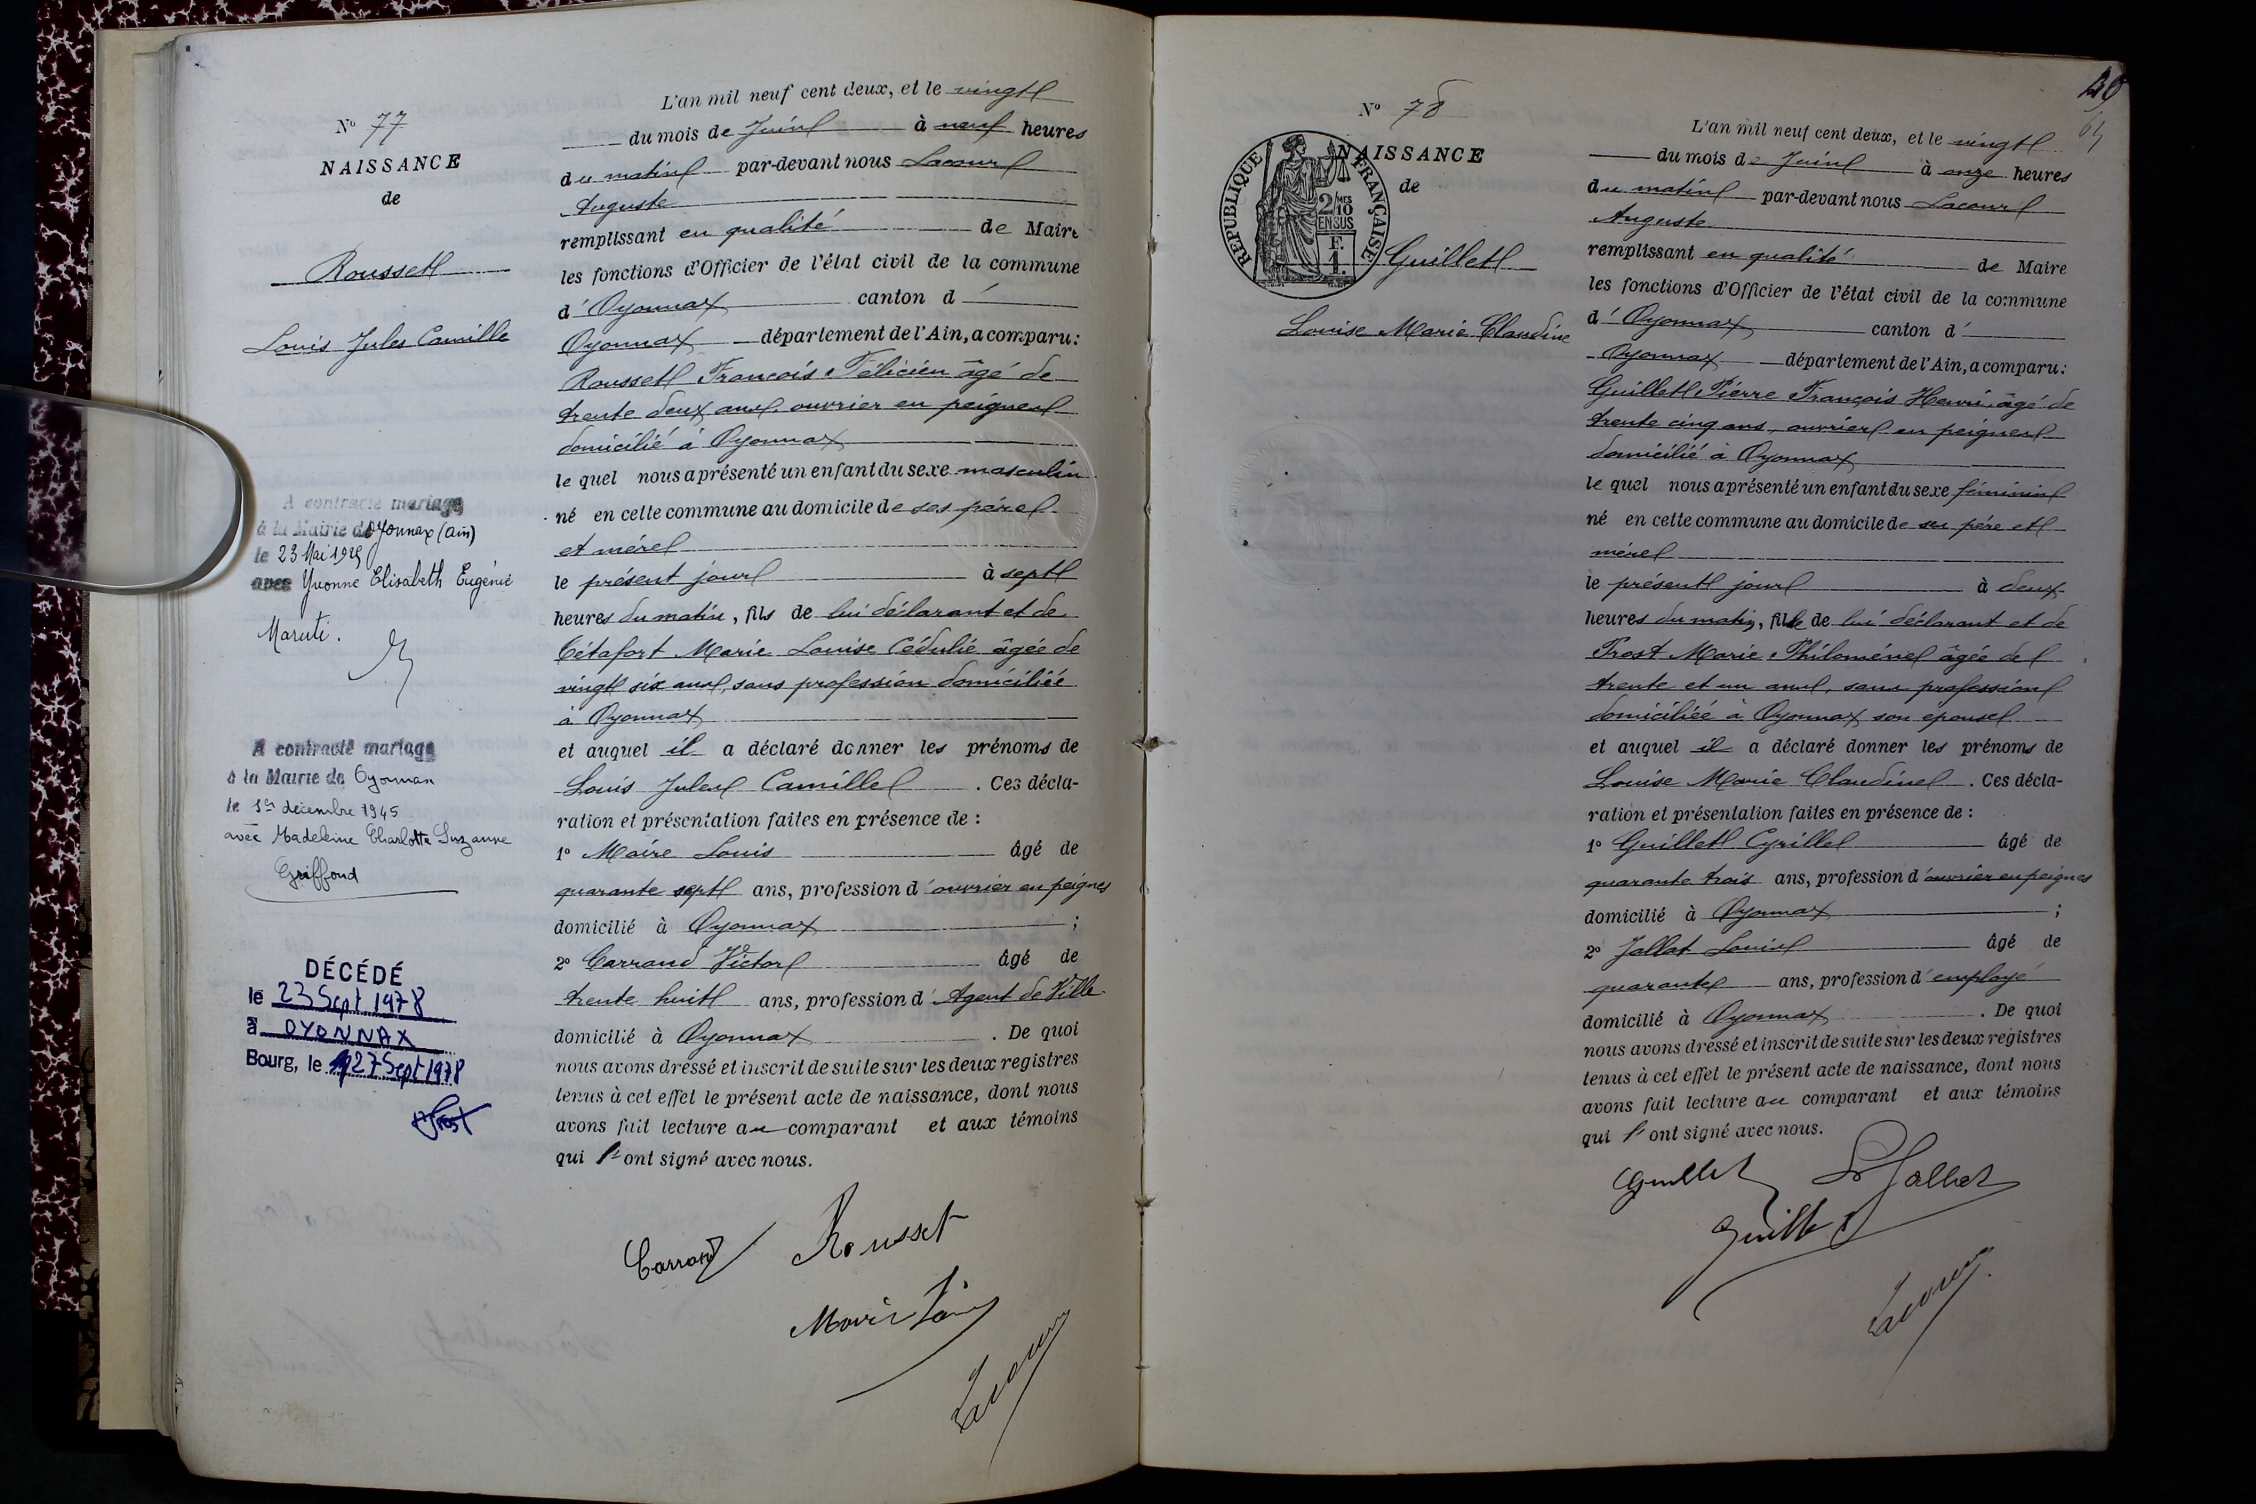 N° 77
NAISSANCE
de
Rousset
Louis Jules Camille
A contracté mariage
à la Mairie d'Oyonnax (Ain)
le 23 Mai 1925
avec Yvonne Elisabeth Eugénie
Maruti.
A contracté mariage
à la Mairie de Oyonnax
le 1er décembre 1945
avec Madeleine Charlotte Suzanne
Griffond
DÉCÉDÉ
le 23 Sept 1978
à OYONNAX
Bourg, le 27 Sept 1978
L'an mil neuf cent deux, et le vingt
du mois de Juin à neuf heures
du matin par-devant nous Lacour
Auguste
remplissant en qualité de Maire
les fonctions d'Officier de l'état civil de la commune
d'Oyonnax canton d'
Oyonnax département de l'Ain, a comparu:
Rousset François Félicien âgé de
trente deux ans, ouvrier en peignes
domicilié à Oyonnax
le quel nous a présenté un enfant du sexe masculin
né en cette commune au domicile de ses père
et mère
le présent jour à sept
heures du matin, fils de lui déclarant et de
Cétafort Marie Louise Cédulie âgée de
vingt six ans, sans profession domiciliée
à Oyonnax
et auquel il a déclaré donner les prénoms de
Louis Jules Camille. Ces décla-
ration et présentation faites en présence de :
1° Maire Louis âgé de
quarante sept ans, profession d'ouvrier en peignes
domicilié à Oyonnax ;
2° Carrand Victor âgé de
trente huit ans, profession d'Agent de Ville
domicilié à Oyonnax. De quoi
nous avons dressé et inscrit de suite sur les deux registres
tenus à cet effet le présent acte de naissance, dont nous
avons fait lecture au comparant et aux témoins
qui l'ont signé avec nous.
Carrand Rousset
Lacour
N° 78
NAISSANCE
de
RÉPUBLIQUE FRANÇAISE
2/10 MES
EN SUS
F.
1.
Guillet
Louise Marie Claudine
L'an mil neuf cent deux, et le vingt
du mois de Juin à onze heures
du matin par-devant nous Lacour
Auguste
remplissant en qualité de Maire
les fonctions d'Officier de l'état civil de la commune
d'Oyonnax canton d'
Oyonnax département de l'Ain, a comparu:
Guillet Pierre François Henri âgé de
trente cinq ans, ouvrier en peignes
domicilié à Oyonnax
le quel nous a présenté un enfant du sexe féminin
né en cette commune au domicile de ses père et
mère
le présent jour à deux
heures du matin, fille de lui déclarant et de
Prost Marie Philomène âgée de
trente et un ans, sans profession
domiciliée à Oyonnax son épouse
et auquel il a déclaré donner les prénoms de
Louise Marie Claudine. Ces décla-
ration et présentation faites en présence de :
1° Guillet Cyrille âgé de
quarante trois ans, profession d'ouvrier en peignes
domicilié à Oyonnax ;
2° Jallat Louis âgé de
quarante ans, profession d'employé
domicilié à Oyonnax. De quoi
nous avons dressé et inscrit de suite sur les deux registres
tenus à cet effet le présent acte de naissance, dont nous
avons fait lecture au comparant et aux témoins
qui l'ont signé avec nous.
Guillet Jallat
Guillet
Lacour